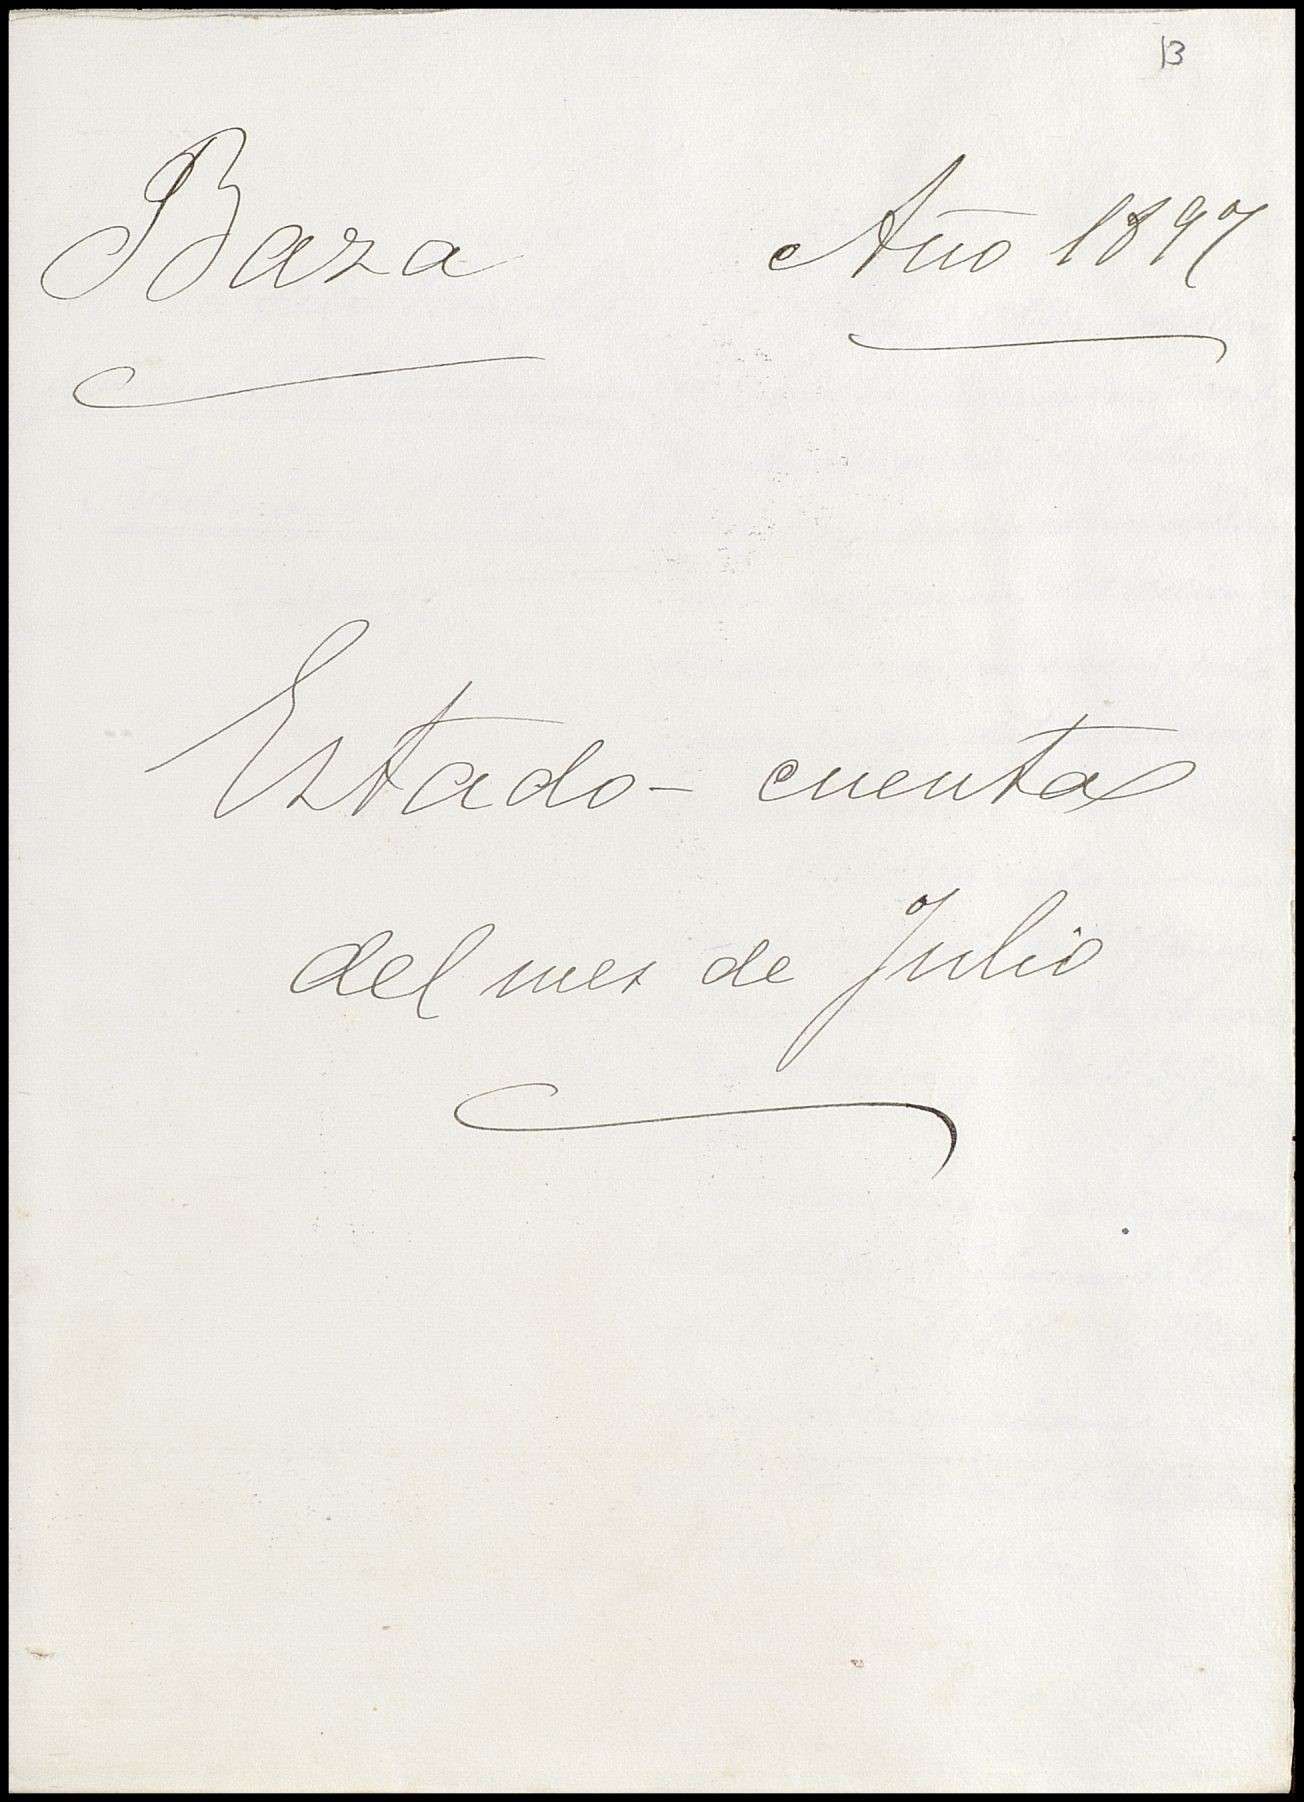 13
Baza Año 1897
Estado-cuenta
del mes de Julio